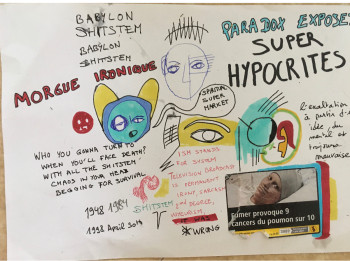 BABYLON
SHITSTEM
BABYLON
SHITSTEM
MORGUE IRONIQUE
PARADOX EXPOSE
SUPER
HYPOCRITES
SPIRITUAL
SUPER
MARKET
l'exaltation
à partir d'
idée du
mental et
toujours
mauvaise
WHO YOU GONNA TURN TO
WHEN YOU'LL FACE DEATH?
WITH ALL THE SHITSTEM
CHAOS IN YOUR HEAD
BEGGING FOR SURVIVAL
1948 1984
SHITSTEM
1998 April 2019
ISM STANDS
FOR SYSTEM
TELEVISION BROADCAST
IS PERMANENT
IRONY, SARCASM
AND DECEIT,
VOYEURISM
WRONG
Fumer provoque 9
cancers du poumon sur 10